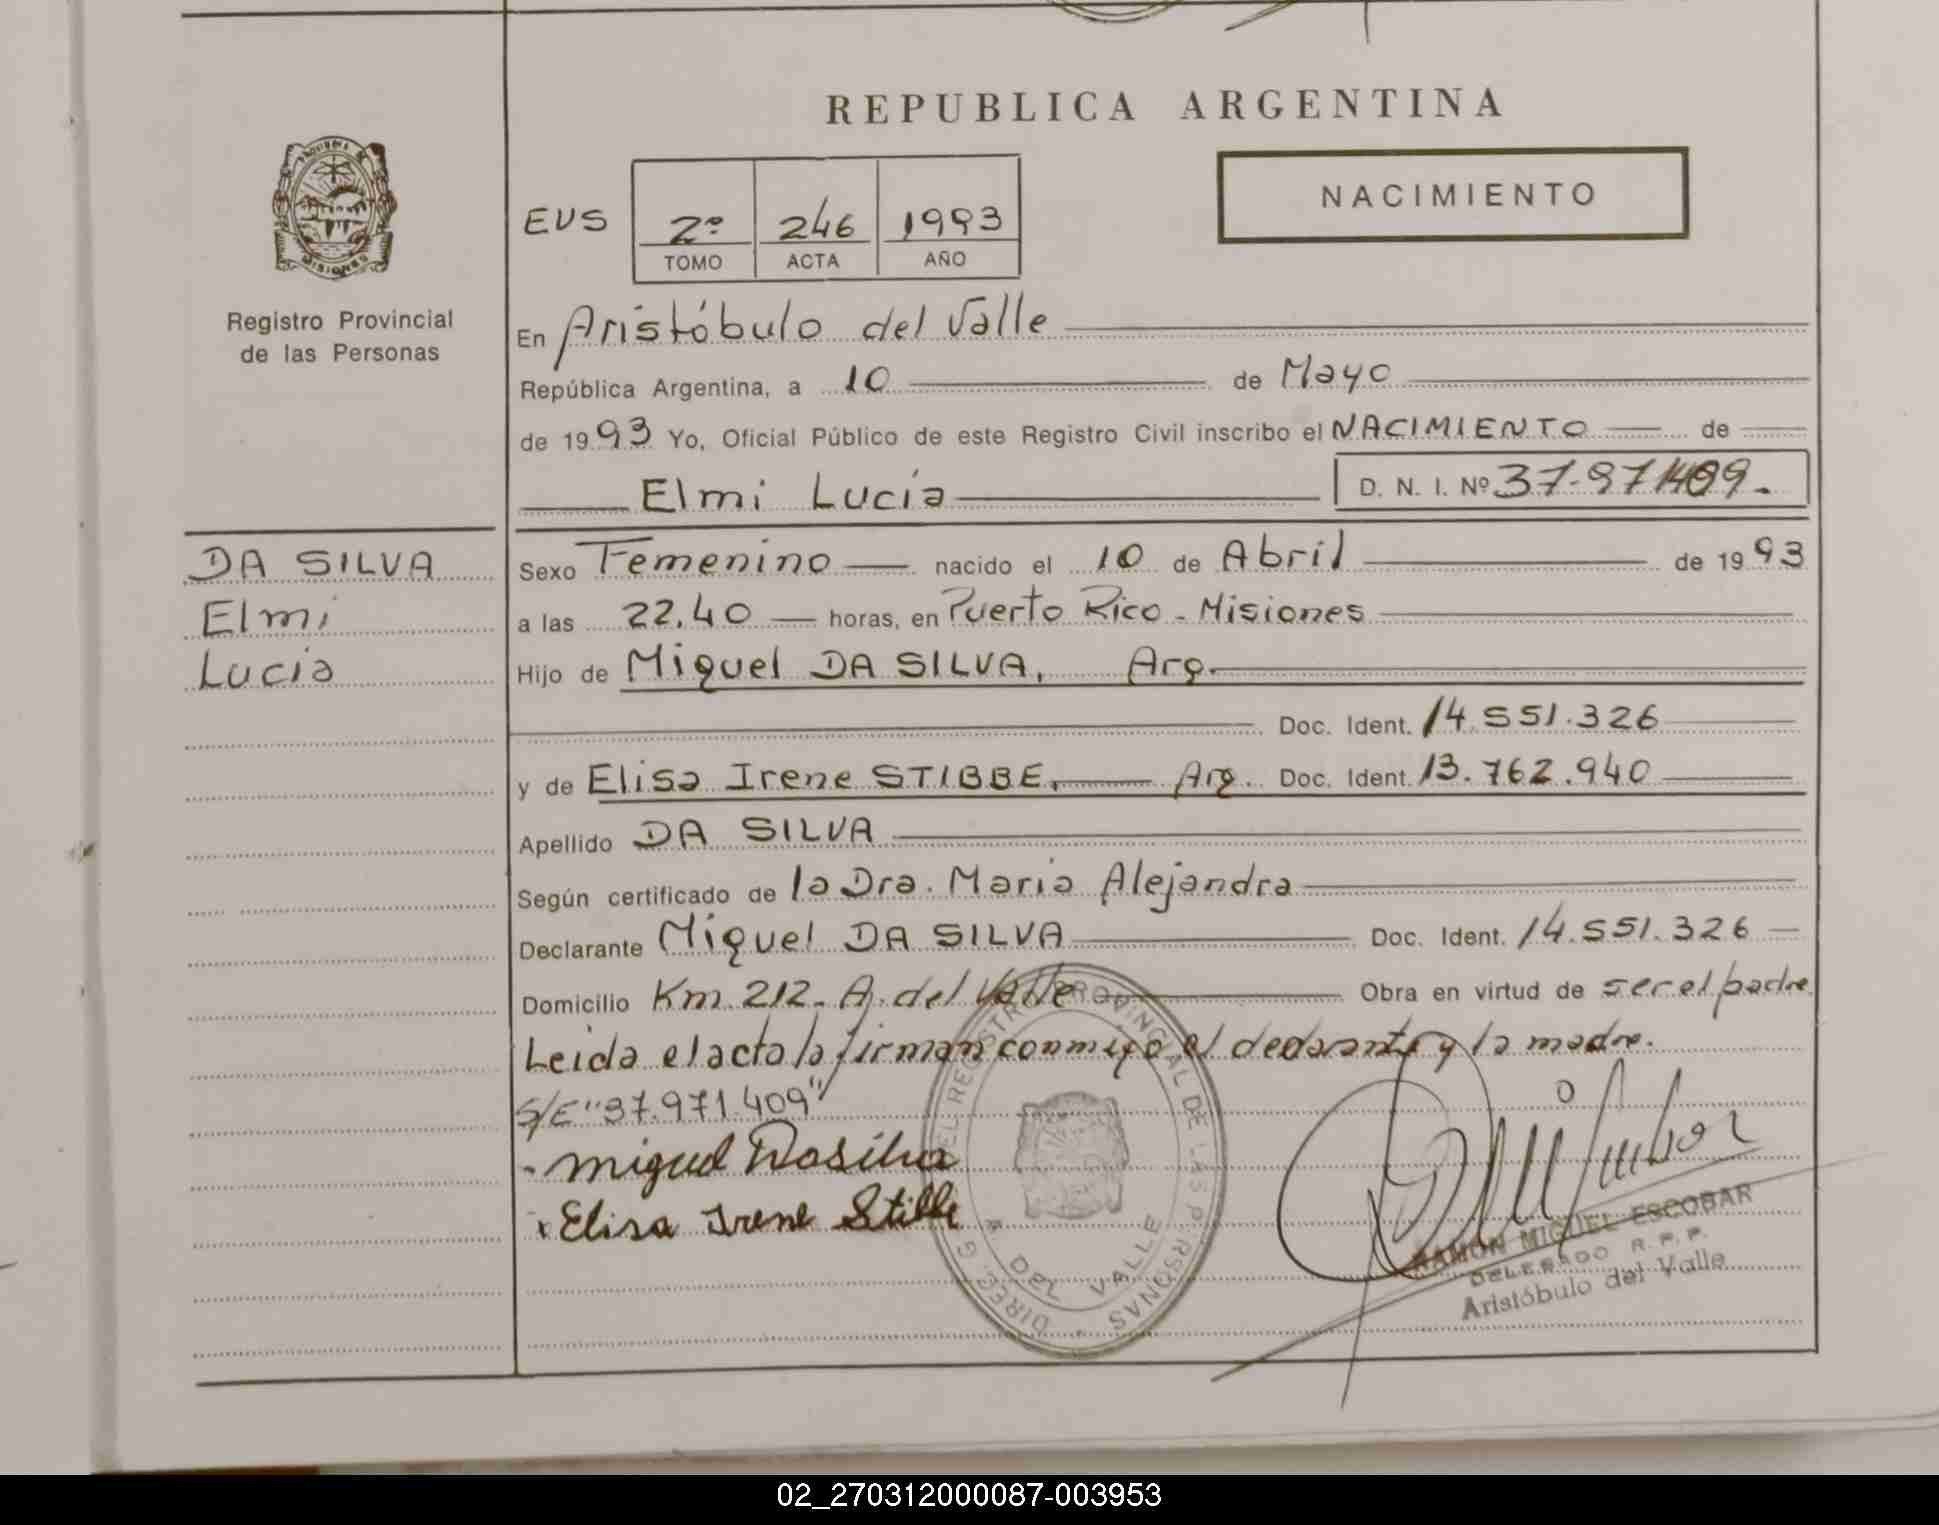 REPUBLICA ARGENTINA
NACIMIENTO
EVS
2º 246 1993
TOMO ACTA AÑO
MISIONES
Registro Provincial
de las Personas
En Aristóbulo del Valle
República Argentina, a 10 de Mayo
de 1993 Yo, Oficial Público de este Registro Civil inscribo el NACIMIENTO de
Elmi Lucía D. N. I. Nº 37-971409.
DA SILVA
Elmi
Lucia
Sexo Femenino nacido el 10 de Abril de 1993
a las 22.40 horas, en Puerto Rico - Misiones
Hijo de Miguel DA SILVA, Arg.
Doc. Ident. 14.551.326
y de Elisa Irene STIBBE, Arg. Doc. Ident. 13.762.940
Apellido DA SILVA
Según certificado de la Dra. Maria Alejandra
Declarante Miguel DA SILVA Doc. Ident. 14.551.326
Domicilio Km. 212. A. del Valle Obra en virtud de ser el padre
Leida el acta la firman conmigo el declarante y la madre.
S/E "37.971.409"
Miguel Dasilva
Elisa Irene Stibbe
DIREC. G DEL REGISTRO PROVINCIAL DE LAS PERSONAS
A. DEL VALLE
RAMON MIGUEL ESCOBAR
DELEGADO R. P. P.
Aristóbulo del Valle
02_270312000087-003953